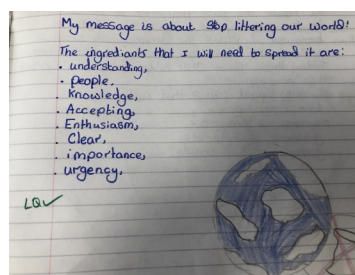 My message is about Stop littering our world!
The ingrediants that I will need to spread it are:
. understanding,
. people,
. Knowledge,
. Accepting,
. Enthusiasm,
. Clear,
. importance,
. urgency,
LQ✓